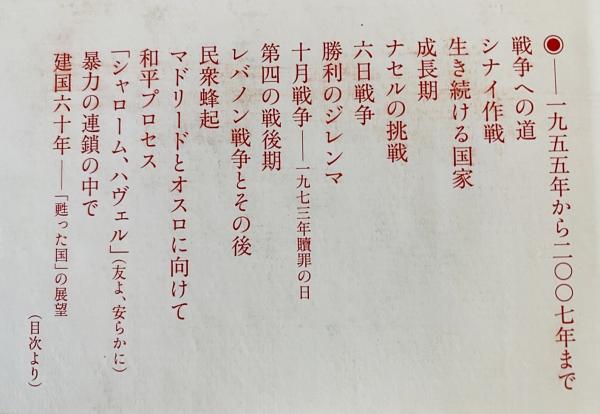 ◉——一九五五年から二〇〇七年まで
戦争への道
シナイ作戦
生き続ける国家
成長期
ナセルの挑戦
六日戦争
勝利のジレンマ
十月戦争——一九七三年贖罪の日
第四の戦後期
レバノン戦争とその後
民衆蜂起
マドリードとオスロに向けて
和平プロセス
「シャローム、ハヴェル」(友よ、安らかに)
暴力の連鎖の中で
建国六十年——「甦った国」の展望
(目次より)